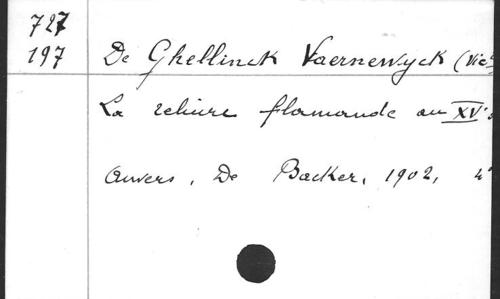 727
197 De Ghellinck Vaernewyck (Vic
La reliure flamande au XVe s
Anvers, De Backer, 1902, 4°